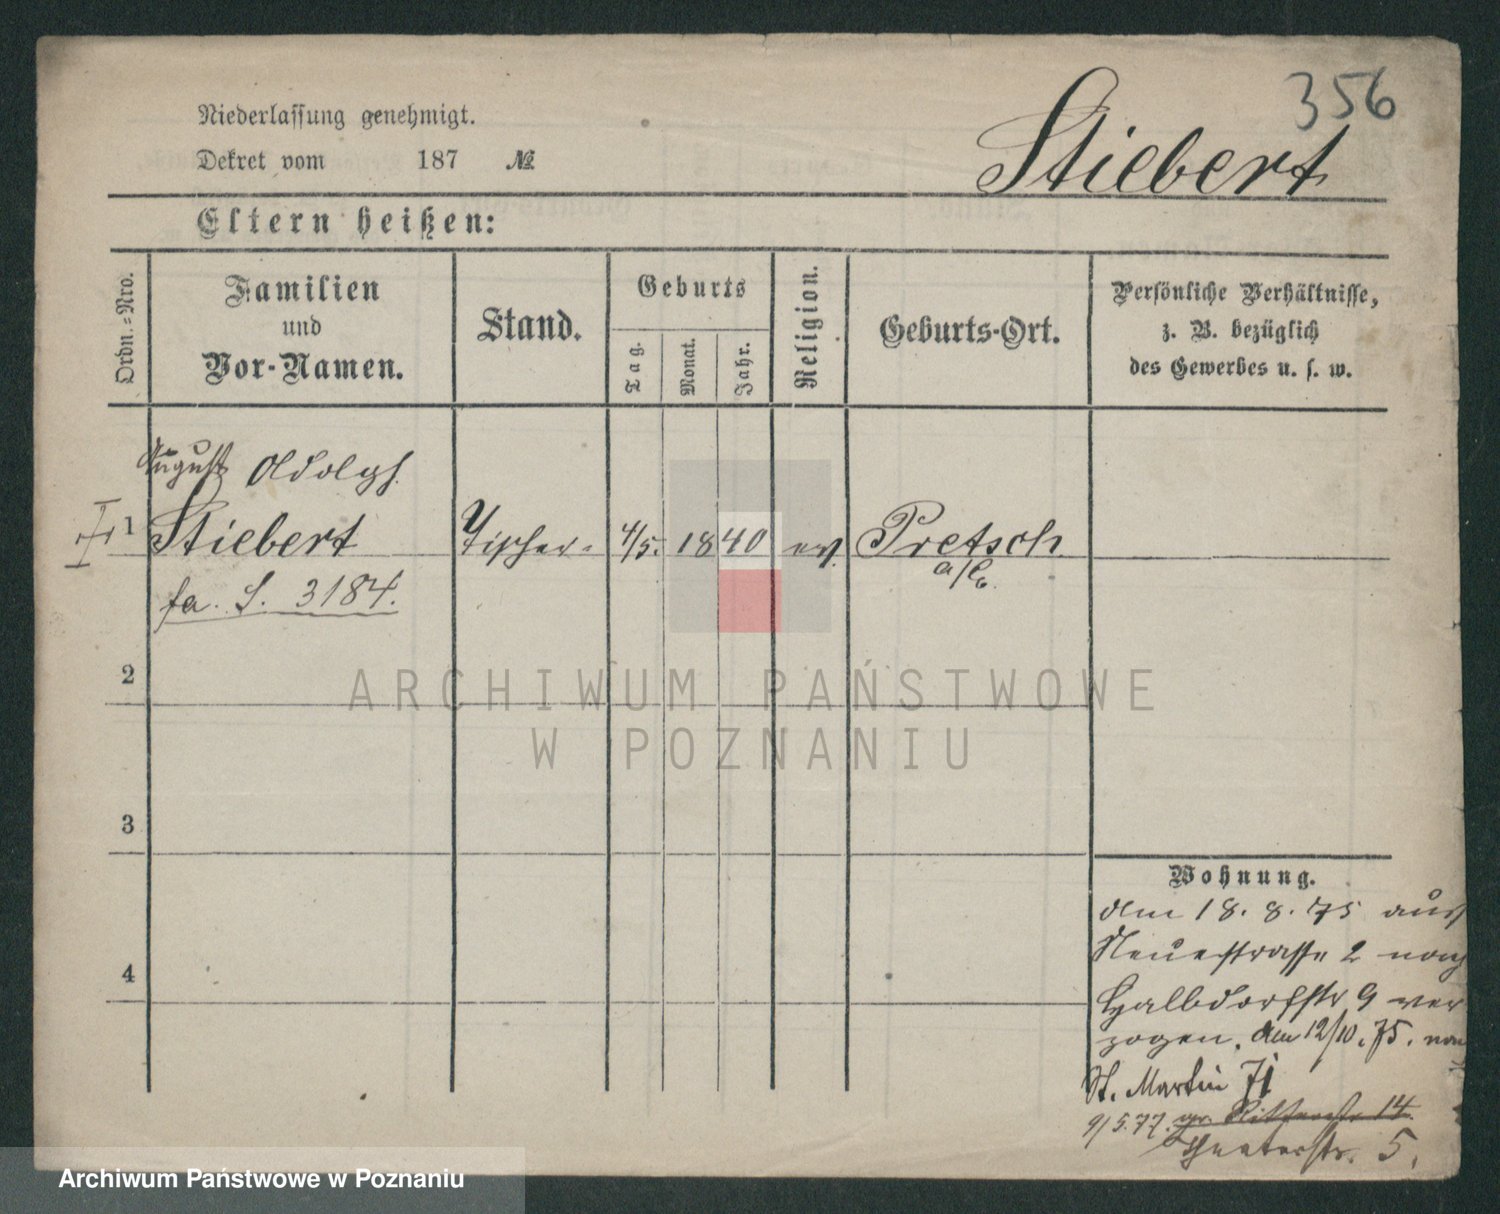 356
Niederlassung genehmigt.
Dekret vom 187 №
Stiebert
Eltern heißen:
Ordn.=Nro.
Familien
und
Vor-Namen.
Stand.
Geburts
Tag.
Monat.
Jahr.
Religion.
Geburts-Ort.
Persönliche Verhältnisse,
z. B. bezüglich
des Gewerbes u. s. w.
August Adolph
1 Stiebert 4/5. 1840 ev. Pretsch
a/E.
fa. S. 3184.
2
3
4
Wohnung.
Am 18. 8. 75 aus
Neuestrasse 2 nach
Halbdorfstr 9 ver
zogen. Am 12/10. 75. nach
St. Martin 71
9/5.77. gr. Ritterstr 14.
Theaterstr. 5.
ARCHIWUM PAŃSTWOWE
W POZNANIU
Archiwum Państwowe w Poznaniu